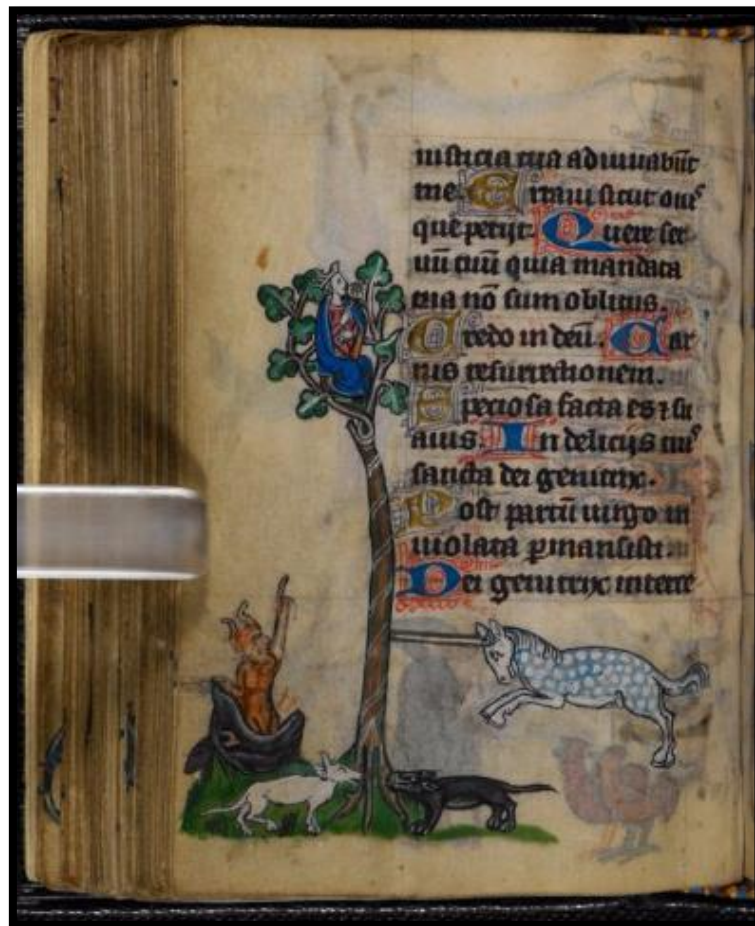 iusticia tua adiuuabūt
me. Erraui sicut ouiˢ
que perijt. Quere ser
uū tuū quia mandata
tua nō sum oblitus.
Credo in deū. Car
nis resurrectionem.
Speciosa facta es ⁊ su
auis. In delicijs tuiˢ
sancta dei genitrix.
Post partū uirgo in
uiolata ꝑmansisti.
Dei genitrix interce